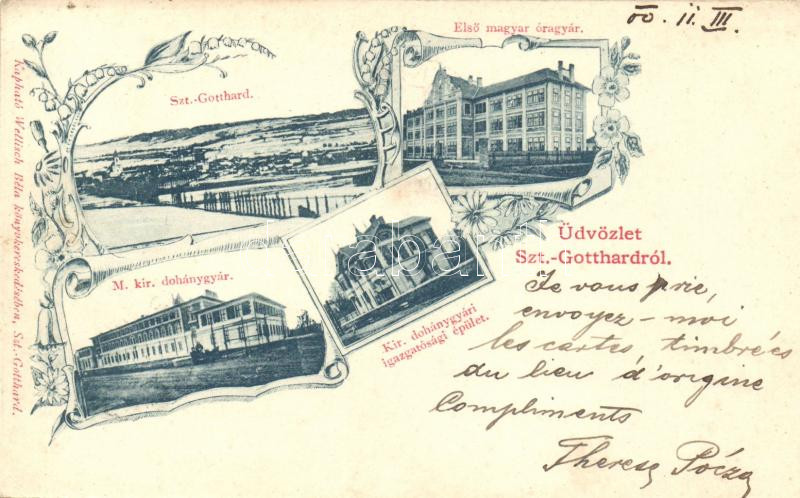 00. II. III.
Első magyar óragyár.
Szt.-Gotthard.
M. kir. dohánygyár.
Kir. dohánygyári
igazgatósági épület.
Üdvözlet
Szt.-Gotthardról.
Je vous prie,
envoyez-moi
les cartes timbrées
du lieu d'origine
Compliments
Therese Pócza
Kapható Wellisch Béla könyvkereskedésében, Szt.-Gotthard.
darabanth